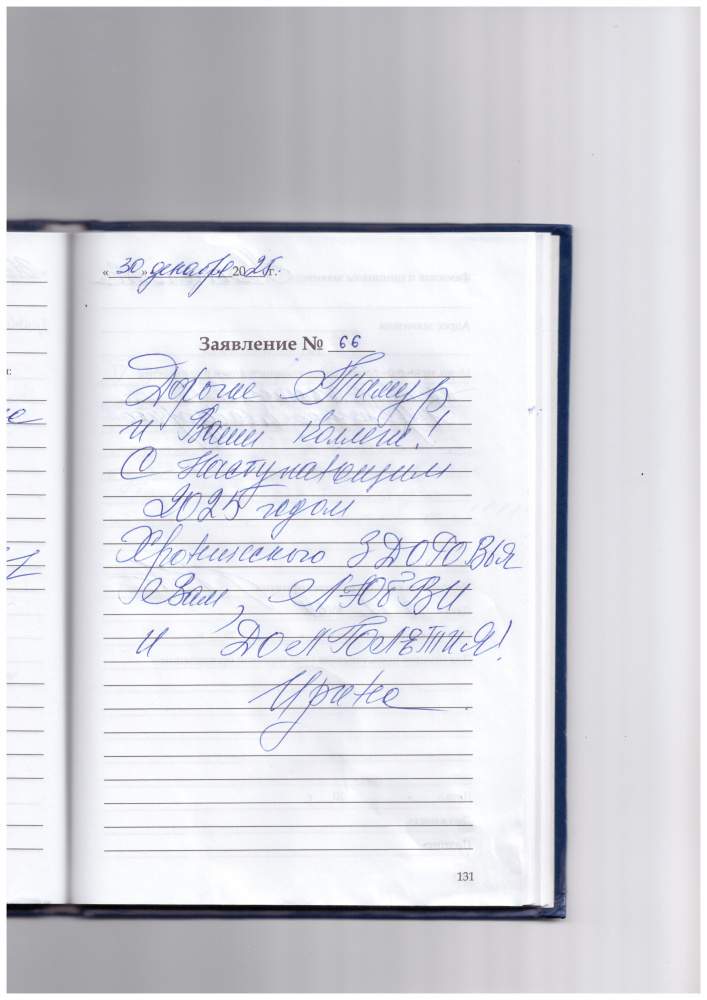 « 30 » декабря 2025 г.
Заявление № 66
Дорогие Тимур
и Ваши коллеги!
С Наступающим
2025 годом
Хронического ЗДОРОВЬЯ
Вам, ЛЮБВИ
и ДОЛГОЛЕТИЯ!
Ирина
131